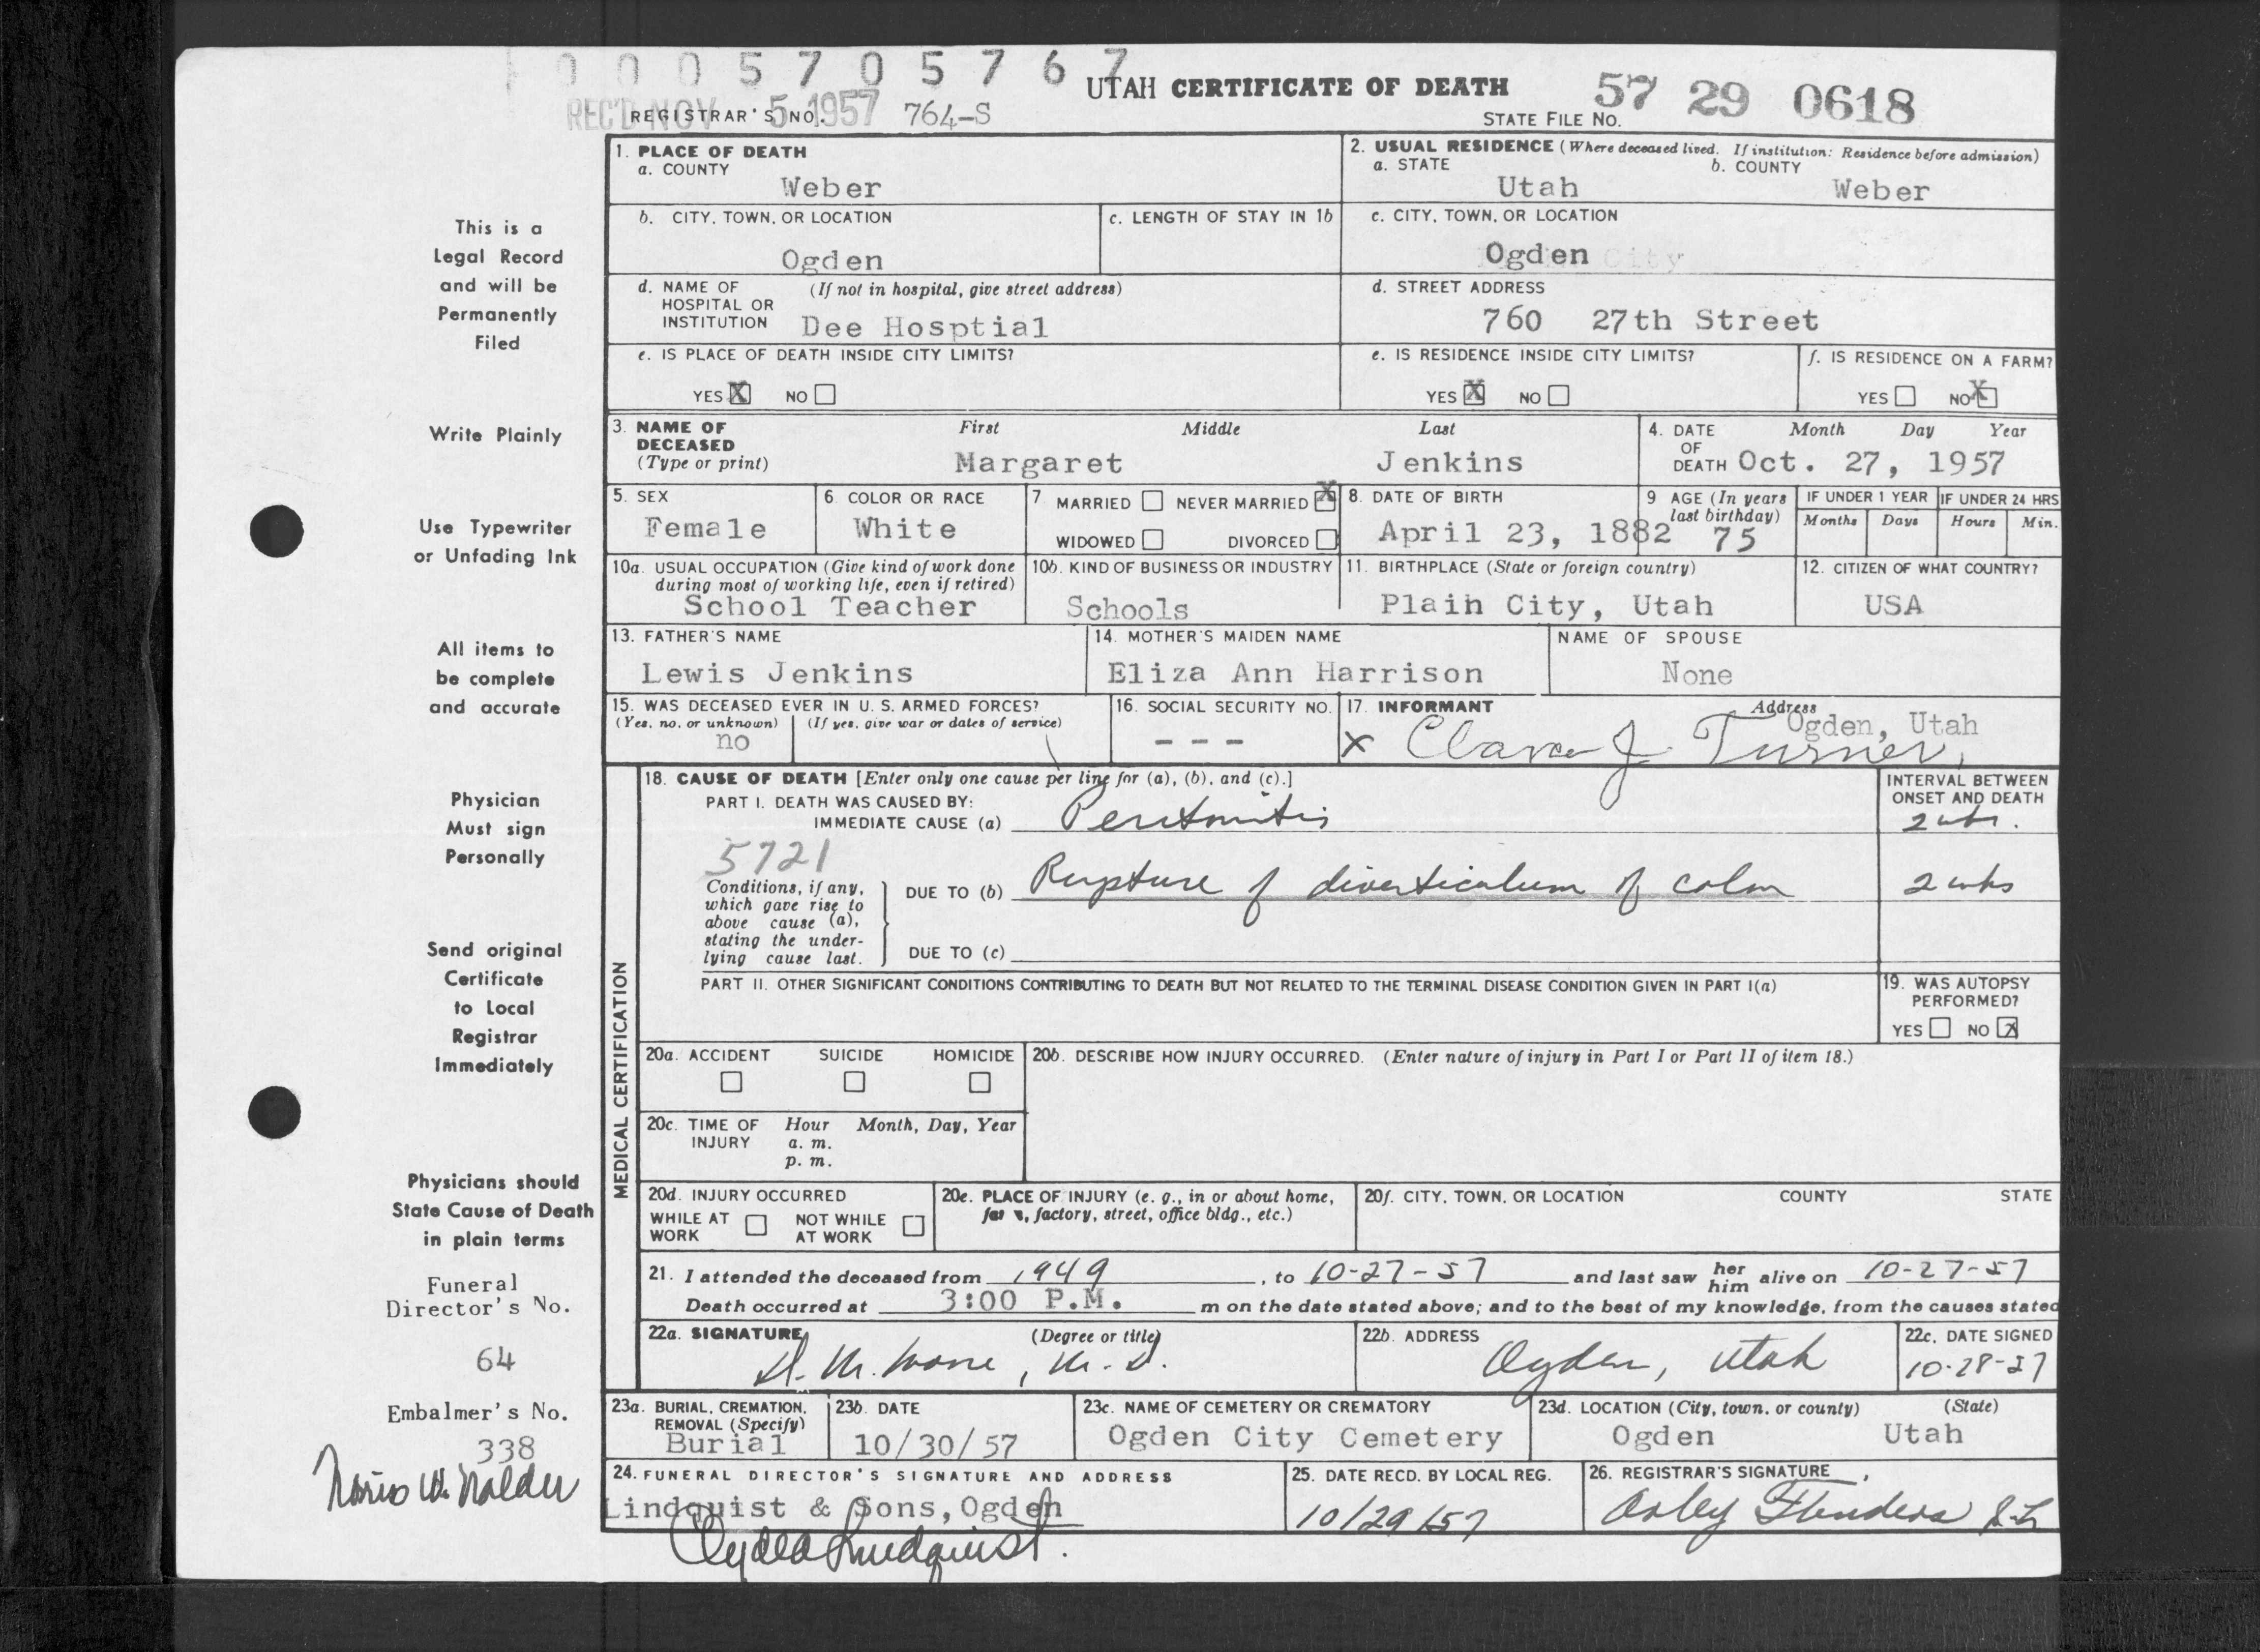 0005705767
UTAH CERTIFICATE OF DEATH
57 29 0618
REC'D NOV 5 1957
REGISTRAR'S NO. 764-S
STATE FILE NO.
1. PLACE OF DEATH
a. COUNTY
Weber
2. USUAL RESIDENCE (Where deceased lived. If institution: Residence before admission)
a. STATE b. COUNTY
Utah Weber
b. CITY, TOWN, OR LOCATION
Ogden
c. LENGTH OF STAY IN 1b
c. CITY, TOWN, OR LOCATION
Ogden City
d. NAME OF HOSPITAL OR INSTITUTION (If not in hospital, give street address)
Dee Hosptial
d. STREET ADDRESS
760 27th Street
e. IS PLACE OF DEATH INSIDE CITY LIMITS?
YES X NO
e. IS RESIDENCE INSIDE CITY LIMITS?
YES X NO
f. IS RESIDENCE ON A FARM?
YES NO X
3. NAME OF DECEASED (Type or print)
First Middle Last
Margaret Jenkins
4. DATE OF DEATH
Month Day Year
Oct. 27, 1957
5. SEX
Female
6. COLOR OR RACE
White
7 MARRIED NEVER MARRIED X
WIDOWED DIVORCED
8. DATE OF BIRTH
April 23, 1882
9 AGE (In years last birthday)
75
IF UNDER 1 YEAR
Months Days
IF UNDER 24 HRS
Hours Min.
10a. USUAL OCCUPATION (Give kind of work done during most of working life, even if retired)
School Teacher
10b. KIND OF BUSINESS OR INDUSTRY
Schools
11. BIRTHPLACE (State or foreign country)
Plain City, Utah
12. CITIZEN OF WHAT COUNTRY?
USA
13. FATHER'S NAME
Lewis Jenkins
14. MOTHER'S MAIDEN NAME
Eliza Ann Harrison
NAME OF SPOUSE
None
15. WAS DECEASED EVER IN U. S. ARMED FORCES?
(Yes, no, or unknown) (If yes, give war or dates of service)
no
16. SOCIAL SECURITY NO.
- - -
17. INFORMANT Address
Ogden, Utah
x Clara J Turner,
MEDICAL CERTIFICATION
18. CAUSE OF DEATH [Enter only one cause per line for (a), (b), and (c).]
PART I. DEATH WAS CAUSED BY:
IMMEDIATE CAUSE (a) Peritonitis
INTERVAL BETWEEN ONSET AND DEATH
2 wks.
5721
Conditions, if any, which gave rise to above cause (a), stating the underlying cause last.
DUE TO (b) Rupture of diverticulum of colon
2 wks
DUE TO (c)
PART II. OTHER SIGNIFICANT CONDITIONS CONTRIBUTING TO DEATH BUT NOT RELATED TO THE TERMINAL DISEASE CONDITION GIVEN IN PART I(a)
19. WAS AUTOPSY PERFORMED?
YES NO X
20a. ACCIDENT SUICIDE HOMICIDE
20b. DESCRIBE HOW INJURY OCCURRED. (Enter nature of injury in Part I or Part II of item 18.)
20c. TIME OF INJURY
Hour Month, Day, Year
a. m.
p. m.
20d. INJURY OCCURRED
WHILE AT WORK NOT WHILE AT WORK
20e. PLACE OF INJURY (e. g., in or about home, factory, street, office bldg., etc.)
20f. CITY, TOWN, OR LOCATION COUNTY STATE
21. I attended the deceased from 1949, to 10-27-57 and last saw her him alive on 10-27-57
Death occurred at 3:00 P.M. m on the date stated above; and to the best of my knowledge, from the causes stated
22a. SIGNATURE (Degree or title)
M.D.
22b. ADDRESS
Ogden, Utah
22c. DATE SIGNED
10-28-57
23a. BURIAL, CREMATION, REMOVAL (Specify)
Burial
23b. DATE
10/30/57
23c. NAME OF CEMETERY OR CREMATORY
Ogden City Cemetery
23d. LOCATION (City, town, or county) (State)
Ogden Utah
24. FUNERAL DIRECTOR'S SIGNATURE AND ADDRESS
Lindquist & Sons, Ogden
Lindquist.
25. DATE RECD. BY LOCAL REG.
10/29/57
26. REGISTRAR'S SIGNATURE
This is a
Legal Record
and will be
Permanently
Filed
Write Plainly
Use Typewriter
or Unfading Ink
All items to
be complete
and accurate
Physician
Must sign
Personally
Send original
Certificate
to Local
Registrar
Immediately
Physicians should
State Cause of Death
in plain terms
Funeral
Director's No.
64
Embalmer's No.
338